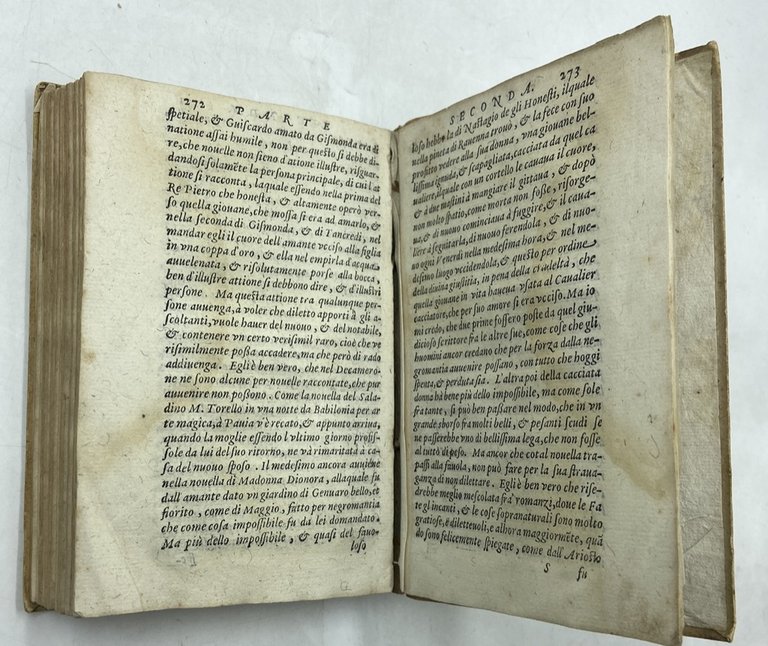 272 PARTE
spetiale, & Guiscardo amato da Gismonda era di
natione assai humile, non per questo si debbe di-
re, che nouelle non sieno d'atione illustre, risguar-
dandosi solamẽte la persona principale, di cui l'at
tione si racconta, laquale essendo nella prima del
Re Pietro che honesta, & altamente operò ver-
so quella giouane, che mossa si era ad amarlo, &
nella seconda di Gismonda, & di Tancredi, nel
mandar egli il cuore dell'amante vcciso alla figlia
in vna coppa d'oro, & ella nel empirla d'acqua
auuelenata, & risolutamente porse alla bocca,
ben d'illustre attione si debbono dire, & d'illustri
persone. Ma questa attione tra qualunque per-
sone auuenga, à voler che diletto apporti à gli a-
scoltanti, vuole hauer del nuouo, & del notabile,
& contenere vn certo verisimil raro, cioè che ve
risimilmente possa accadere, ma che però di rado
addiuenga. Egli è ben vero, che nel Decamero-
ne ne sono alcune per nouelle raccontate, che pur
auuenire non possono. Come la nouella del Sala-
dino M. Torello in vna notte da Babilonia per ar
te magica, à Pauia v'è recato, & appunto arriua,
quando la moglie essendo l'vltimo giorno prefis-
sole da lui del suo ritorno, ne và rimaritata à ca-
sa del nuouo sposo. Il medesimo ancora auuiene
nella nouella di Madonna Dionora, allaquale fu
dall'amante dato vn giardino di Genuaro bello, et
fiorito, come di Maggio, fatto per negromantia
che come cosa impossibile fu da lei domandato.
Ma più dello impossibile, & quasi del fauo-
loso
SECONDA. 273
loso hebbe la di Nastagio de gli Honesti, ilquale
nella pineta di Rauenna trouò, & la fece con suo
profitto vedere alla sua donna, vna giouane bel-
lissima ignuda, & scapagliata, cacciata da quel ca
ualiere, ilquale con un cortello le cauaua il cuore,
& a due mastini à mangiare il gittaua, & dopò
non molto spatio, come morta non fosse, risorge-
ua, & di nuouo cominciaua à fuggire, & il caua-
liere à seguitarla, di nuouo ferendola, & di nuo-
uo ogni Venerdi nella medesima hora, & nel me-
desimo luogo vccidendola, & questo per ordine
della diuina giustitia, in pena della crudeltà, che
quella giouane in vita haueua vsata al Caualier
cacciatore, che per suo amore si era vcciso. Ma io
mi credo, che due prime fossero poste da quel giu-
dicioso scrittore fra le altre sue, come cose che gli
huomini ancor credano che per la forza dalla ne-
gromantia auuenire possano, con tutto che hoggi
spenta, & perduta sia. L'altra poi della cacciata
donna hà bene più dello impossibile, ma come sole
fra tante, si può ben passare nel modo, che in vn
grande sborso fra molti belli, & pesanti scudi se
ne passerebbe vno di bellissima lega, che non fosse
al tutto di peso. Ma ancor che cotal nouella tra-
passi alla fauola, non può fare per la sua straua-
ganza di non dilettare. Egli è ben vero che rise-
drebbe meglio mescolata fra romanzi, doue le Fa
te gli incanti, & le cose sopranaturali sono molto
gratiose, & diletteuoli, e alhora maggiormẽte, quã
do sono felicemente spiegate, come dall'Ariosto
S fu